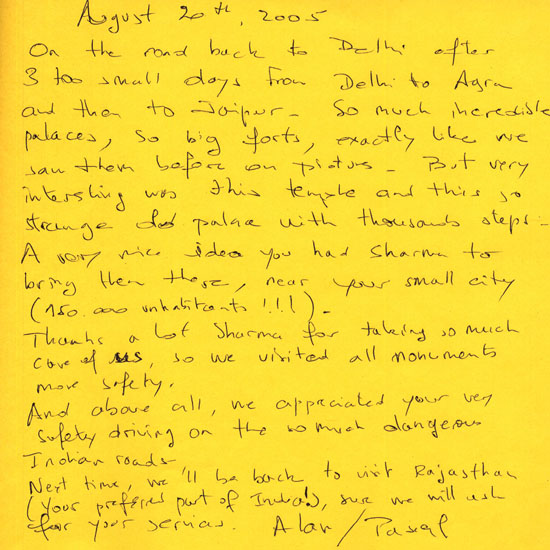 August 20th, 2005
On the road back to Delhi after
3 too small days from Delhi to Agra
and then to Jaipur - So much incredible
palaces, so big forts, exactly like we
saw them before on picture - But very
intersting was this temple and this so
strange palace with thousands steps -
A very nice idea you had Sharma to
bring them there, near your small city
(150.000 inhabitants !!!) -
Thanks a lot Sharma for taking so much
care of us, so we visited all monuments
more safety.
And above all, we appreciated your very
safety driving on the so much dangerous
Indian roads -
Next time, we'll be back to visit Rajasthan
(your prefered part of India!), sure we will ask
for your services. Alan / Pascal